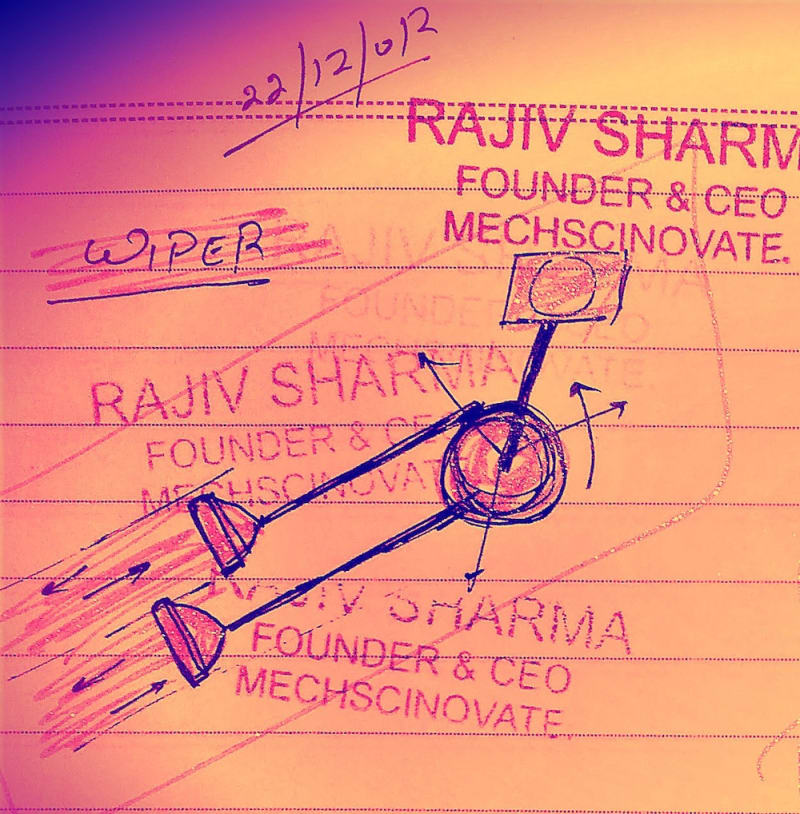 22/12/012
RAJIV SHARM
FOUNDER & CEO
MECHSCINOVATE.
WIPER
RAJIV SHARMA
FOUNDER & CEO
MECHSCINOVATE.
RAJIV SHARMA
FOUNDER & CEO
MECHSCINOVAT
RAJIV SHARMA
FOUNDER & CEO
MECHSCINOVATE.